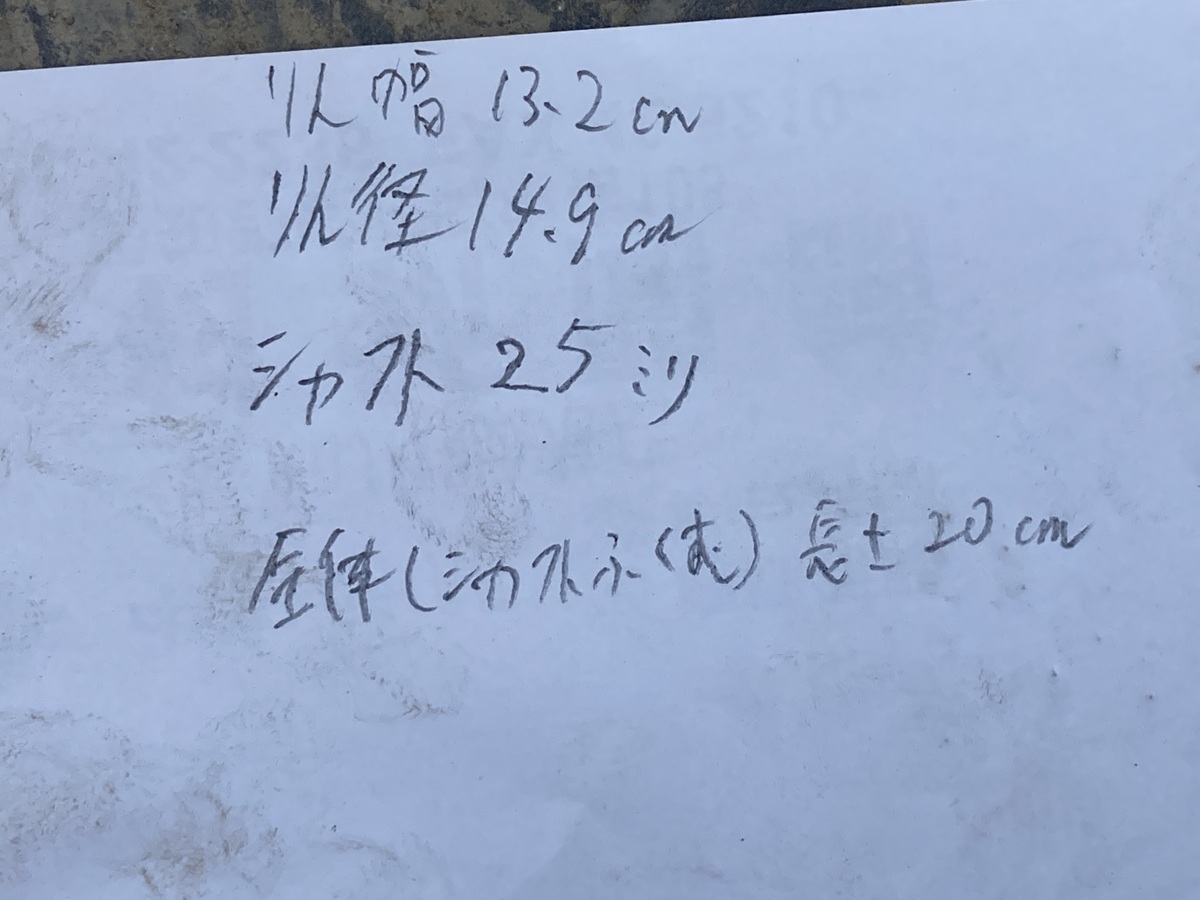 リム幅 13.2cm
リム径 14.9cm
シャフト 25ミリ
全体(シャフト含む) 長± 20cm